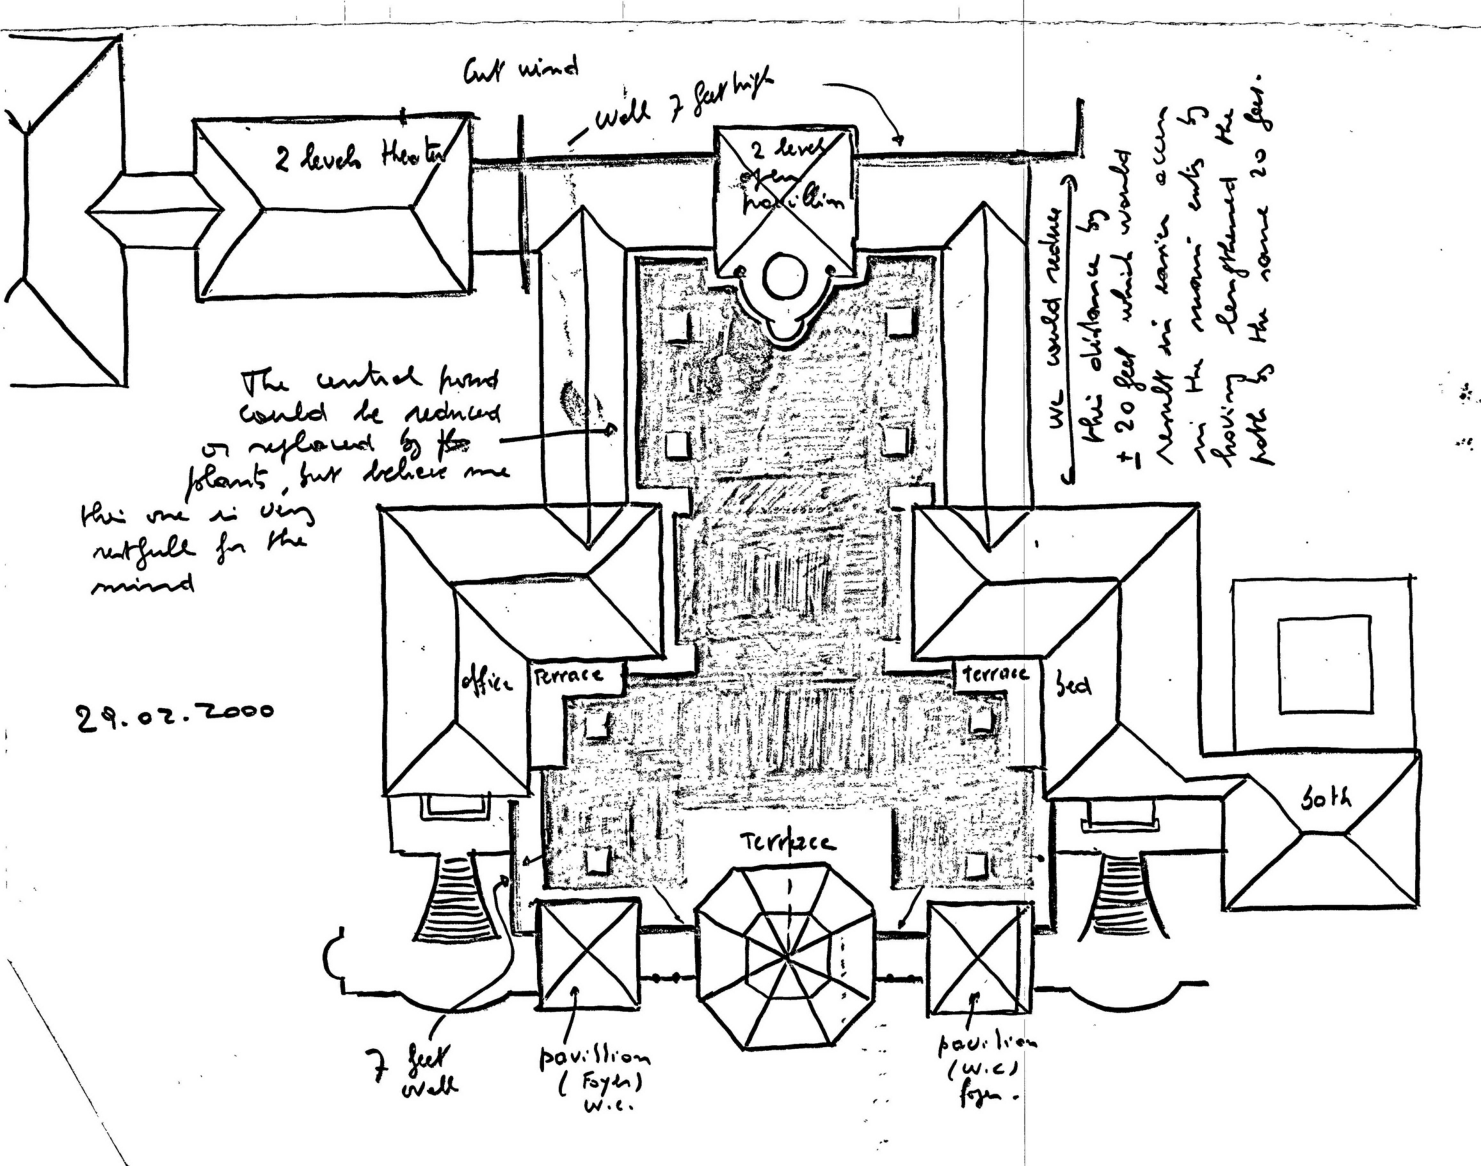 Cut wind
Wall 7 feet high
2 levels theater
2 level
open
pavillion
we would reduce
this distance by
± 20 feet which would
result in easier access
in the main entry by
having lengthened the
path by the same 20 feet.
The central pond
could be reduced
or replaced by
plants, but believe me
this one is very
restfull for the
mind
29.02.2000
office
Terrace
Terrace
bed
both
Terrace
7 feet
wall
pavillion
(Foyer)
w.c.
pavilion
(w.c)
foyer.